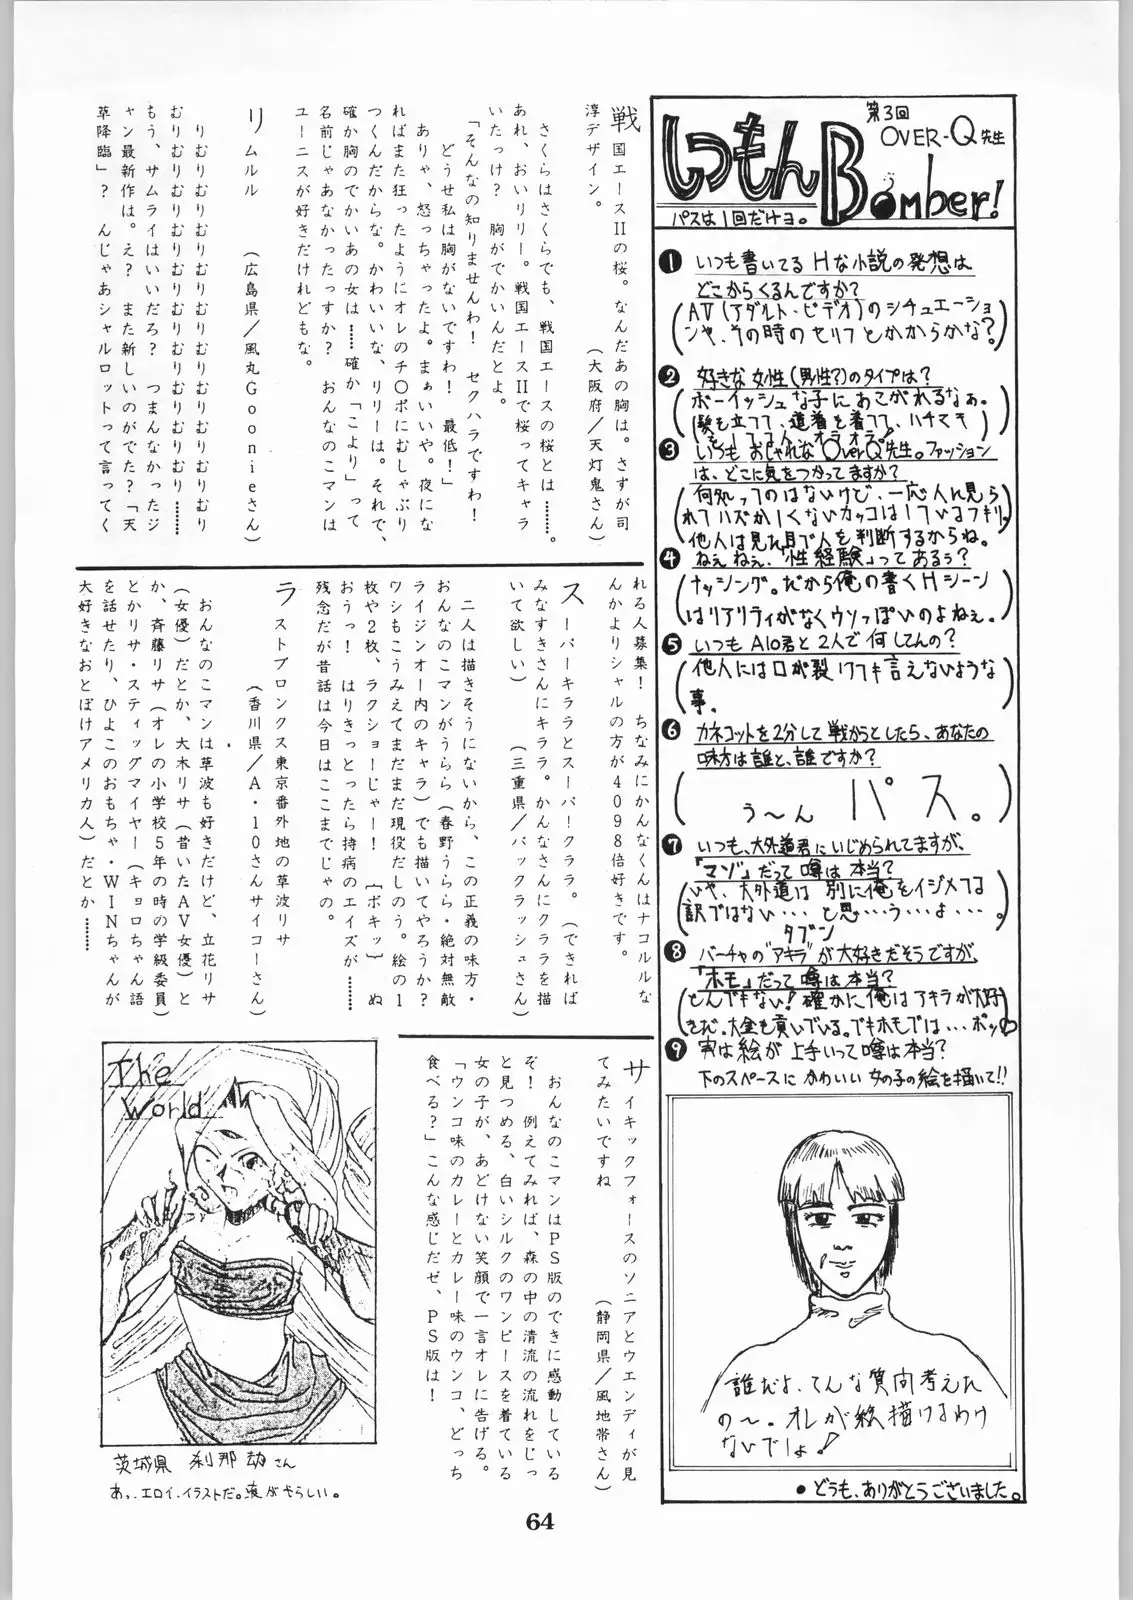 戦国エースIIの桜。なんだあの胸は。さすが司
淳デザイン。　　　（大阪府／天灯鬼さん）
さくらはさくらでも、戦国エースの桜とは……。
あれ、おいリリー。戦国エースIIで桜ってキャラ
いたっけ？　胸がでかいんだとよ。
「そんなの知りませんわ！　セクハラですわ！
どうせ私は胸がないですわ！　最低！」
ありゃ、怒っちゃったよ。まぁいいや。夜にな
ればまた狂ったようにオレのチ〇ポにむしゃぶり
つくんだからな。かわいいな、リリーは。それで、
確か胸のでかいあの女は……確か「こより」って
名前じゃあなかったっすか？　おんなのこマンは
ユーニスが好きだけれどもな。
リムルル　　　（広島県／風丸Ｇｏｏｎｉｅさん）
りむりむりむりむりむりむりむりむりむりむり
むりむりむりむりむりむりむりむりむり………
もう、サムライはいいだろ？　つまんなかったジ
ャン最新作は。え？　また新しいのがでた？「天
草降臨」？　んじゃあシャルロットって言ってく
れる人募集！　ちなみにかんなくんはナコルルな
んかよりシャルの方が4098倍好きです。
スーパーキララとスーパークララ。（できれば
みなすきさんにキララ。かんなさんにクララを描
いて欲しい）　　（三重県／バックラッシュさん）
二人は描きそうにないから、この正義の味方・
おんなのこマンがうらら（春野うらら・絶対無敵
ライジンオー内のキャラ）でも描いてやろうか？
ワシもこうみえてまだまだ現役だしのう。絵の１
枚や２枚、ラクショーじゃー！　［ボキッ］　ぬ
おうっ！　はりきっとったら持病のエイズが………
残念だが昔話は今日はここまでじゃの。
ラストブロンクス東京番外地の草波リサ
（香川県／Ａ・１０さんサイコーさん）
おんなのこマンは草波も好きだけど、立花リサ
（女優）だとか、大木リサ（昔いたＡＶ女優）と
か、斉藤リサ（オレの小学校５年の時の学級委員）
とかリサ・スティッグマイヤー（キョロちゃん語
を話せたり、ひよこのおもちゃ・ＷＩＮちゃんが
大好きなおとぼけアメリカ人）だとか………
サイキックフォースのソニアとウエンディが見
てみたいですね　　　（静岡県／風地帯さん）
おんなのこマンはＰＳ版のできに感動している
ぞ！　例えてみれば、森の中の清流の流れをじっ
と見つめる、白いシルクのワンピースを着ている
女の子が、あどけない笑顔で一言オレに告げる。
「ウンコ味のカレーとカレー味のウンコ、どっち
食べる？」こんな感じだゼ、ＰＳ版は！
The
World
茨城県　刹那劫さん
あ、エロイ、イラストだ。液がやらしい。
第3回
OVER-Q先生
しつもんBomber!
パスは1回だけヨ。
❶いつも書いてるHな小説の発想は
どこからくるんですか？
（AV（アダルト・ビデオ）のシチュエーショ
ンや、その時のセリフとかからかな？）
❷好きな女性（男性？）のタイプは？
（ボーイッシュな子にあこがれるなぁ。
髪を立てて、道着を着てて、ハチマキ
❸いつもおしゃれなOverQ先生。ファッション
は、どこに気をつかってますか？
（何知ってのはないけど、一応人に見ら
れてハズかしくないカッコはしているつもり。
他人は見た目で人を判断するからね。
❹ねぇねぇ、「性経験」ってあるぅ？
（ナッシング。だから俺の書くHシーン
はリアリティがなくウソっぽいのよねぇ。）
❺いつもAlo君と2人で何してんの？
（他人には口が裂けても言えないような
事。）
❻カネコットを2分して戦かうとしたら、あなたの
味方は誰と、誰ですか？
（う〜ん　パス。）
❼いつも、大外道君にいじめられてますが、
「マゾ」だって噂は本当？
（いや、大外道は別に俺をイジメてる
訳ではない…と思…う…よ…。）
タブン
❽バーチャの“アキラ”が大好きだそうですが、
「ホモ」だって噂は本当？
（とんでもない！確かに俺はアキラが大好
きだ。大金も貢いでいる。でもホモでは…ポッ♡）
❾実は絵が上手いって噂は本当？
下のスペースにかわいい女の子の絵を描いて!!
誰だよ、こんな質問考えた
の〜。オレが絵描けるわけ
ないでしょ！
●どうも、ありがとうございました。
64